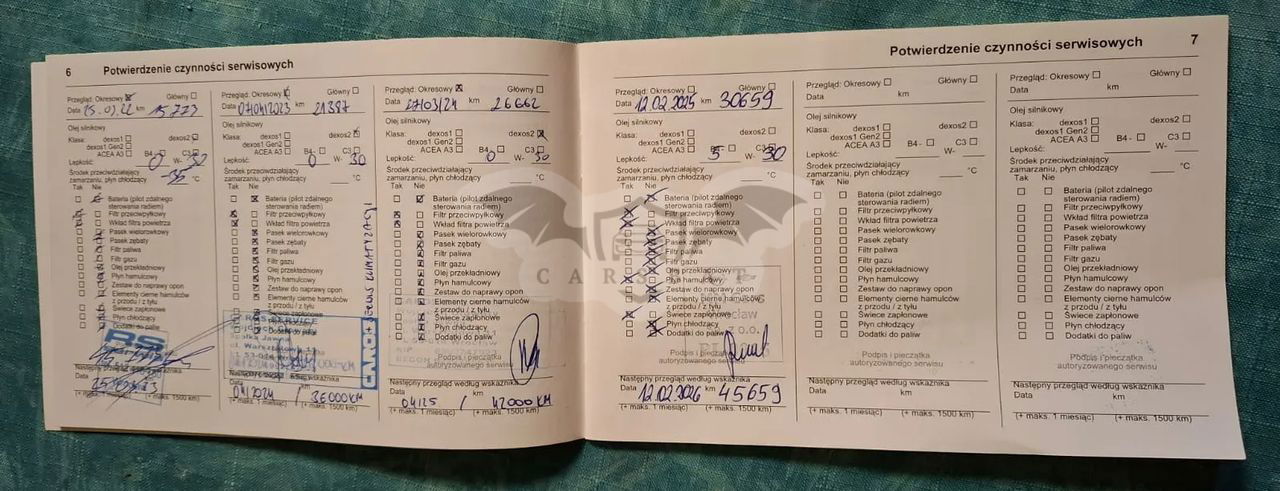 6 Potwierdzenie czynności serwisowych
Przegląd: Okresowy Główny
Data 15.03.22 km 15773
Olej silnikowy
Klasa: dexos1 dexos2
dexos1 Gen2
ACEA A3 B4- C3
Lepkość: 0 W-
Środek przeciwdziałający
zamarzaniu, płyn chłodzący -35 °C
Tak Nie
Bateria (pilot zdalnego
sterowania radiem)
Filtr przeciwpyłkowy
Wkład filtra powietrza
Pasek wielorowkowy
Pasek zębaty
Filtr paliwa
Filtr gazu
Olej przekładniowy
Płyn hamulcowy
Zestaw do naprawy opon
Elementy cierne hamulców
z przodu / z tyłu
Świece zapłonowe
Płyn chłodzący
Dodatki do paliw
RS
Następny przegląd według wskaźnika
Data km
(+ maks. 1 miesiąc) (+ maks. 1500 km)
Przegląd: Okresowy Główny
Data 07/04/2023 km 21387
Olej silnikowy
Klasa: dexos1 dexos2
dexos1 Gen2
ACEA A3 B4- C3
Lepkość: 0 W- 30
Środek przeciwdziałający
zamarzaniu, płyn chłodzący °C
Tak Nie
Bateria (pilot zdalnego
sterowania radiem)
Filtr przeciwpyłkowy
Wkład filtra powietrza
Pasek wielorowkowy
Pasek zębaty
Filtr paliwa
Filtr gazu
Olej przekładniowy
Płyn hamulcowy
Zestaw do naprawy opon
Elementy cierne hamulców
z przodu / z tyłu
Świece zapłonowe
Płyn chłodzący
Dodatki do paliw
KLIMATYZACJI
Następny przegląd według wskaźnika
Data km
04/2024 / 36000KM
(+ maks. 1 miesiąc) (+ maks. 1500 km)
Przegląd: Okresowy Główny
Data 27/03/24 km 26662
Olej silnikowy
Klasa: dexos1 dexos2
dexos1 Gen2
ACEA A3 B4- C3
Lepkość: 0 W- 30
Środek przeciwdziałający
zamarzaniu, płyn chłodzący °C
Tak Nie
Bateria (pilot zdalnego
sterowania radiem)
Filtr przeciwpyłkowy
Wkład filtra powietrza
Pasek wielorowkowy
Pasek zębaty
Filtr paliwa
Filtr gazu
Olej przekładniowy
Płyn hamulcowy
Zestaw do naprawy opon
Elementy cierne hamulców
z przodu / z tyłu
Świece zapłonowe
Płyn chłodzący
Dodatki do paliw
Podpis i pieczątka
autoryzowanego serwisu
Następny przegląd według wskaźnika
Data km
04/25 / 42000 KM
(+ maks. 1 miesiąc) (+ maks. 1500 km)
Potwierdzenie czynności serwisowych 7
Przegląd: Okresowy Główny
Data 12.02.2025 km 30659
Olej silnikowy
Klasa: dexos1 dexos2
dexos1 Gen2
ACEA A3 B4- C3
Lepkość: 5 W- 30
Środek przeciwdziałający
zamarzaniu, płyn chłodzący °C
Tak Nie
Bateria (pilot zdalnego
sterowania radiem)
Filtr przeciwpyłkowy
Wkład filtra powietrza
Pasek wielorowkowy
Pasek zębaty
Filtr paliwa
Filtr gazu
Olej przekładniowy
Płyn hamulcowy
Zestaw do naprawy opon
Elementy cierne hamulców
z przodu / z tyłu
Świece zapłonowe
Płyn chłodzący
Dodatki do paliw
Podpis i pieczątka
autoryzowanego serwisu
Następny przegląd według wskaźnika
Data 12.02.2026 km 45659
(+ maks. 1 miesiąc) (+ maks. 1500 km)
Przegląd: Okresowy Główny
Data km
Olej silnikowy
Klasa: dexos1 dexos2
dexos1 Gen2
ACEA A3 B4- C3
Lepkość: W-
Środek przeciwdziałający
zamarzaniu, płyn chłodzący °C
Tak Nie
Bateria (pilot zdalnego
sterowania radiem)
Filtr przeciwpyłkowy
Wkład filtra powietrza
Pasek wielorowkowy
Pasek zębaty
Filtr paliwa
Filtr gazu
Olej przekładniowy
Płyn hamulcowy
Zestaw do naprawy opon
Elementy cierne hamulców
z przodu / z tyłu
Świece zapłonowe
Płyn chłodzący
Dodatki do paliw
Podpis i pieczątka
autoryzowanego serwisu
Następny przegląd według wskaźnika
Data km
(+ maks. 1 miesiąc) (+ maks. 1500 km)
Przegląd: Okresowy Główny
Data km
Olej silnikowy
Klasa: dexos1 dexos2
dexos1 Gen2
ACEA A3 B4- C3
Lepkość: W-
Środek przeciwdziałający
zamarzaniu, płyn chłodzący °C
Tak Nie
Bateria (pilot zdalnego
sterowania radiem)
Filtr przeciwpyłkowy
Wkład filtra powietrza
Pasek wielorowkowy
Pasek zębaty
Filtr paliwa
Filtr gazu
Olej przekładniowy
Płyn hamulcowy
Zestaw do naprawy opon
Elementy cierne hamulców
z przodu / z tyłu
Świece zapłonowe
Płyn chłodzący
Dodatki do paliw
Podpis i pieczątka
autoryzowanego serwisu
Następny przegląd według wskaźnika
Data km
(+ maks. 1 miesiąc) (+ maks. 1500 km)